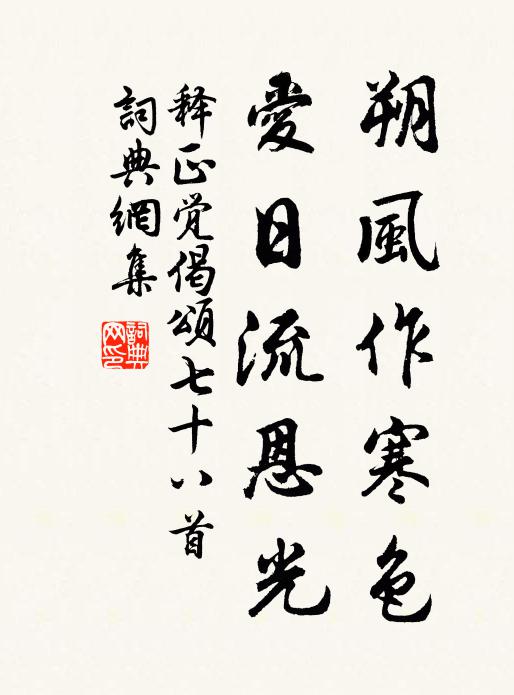 朔風作寒色
愛日流恩光
释正觉偈頌七十八首
詞典網集
詞典网印